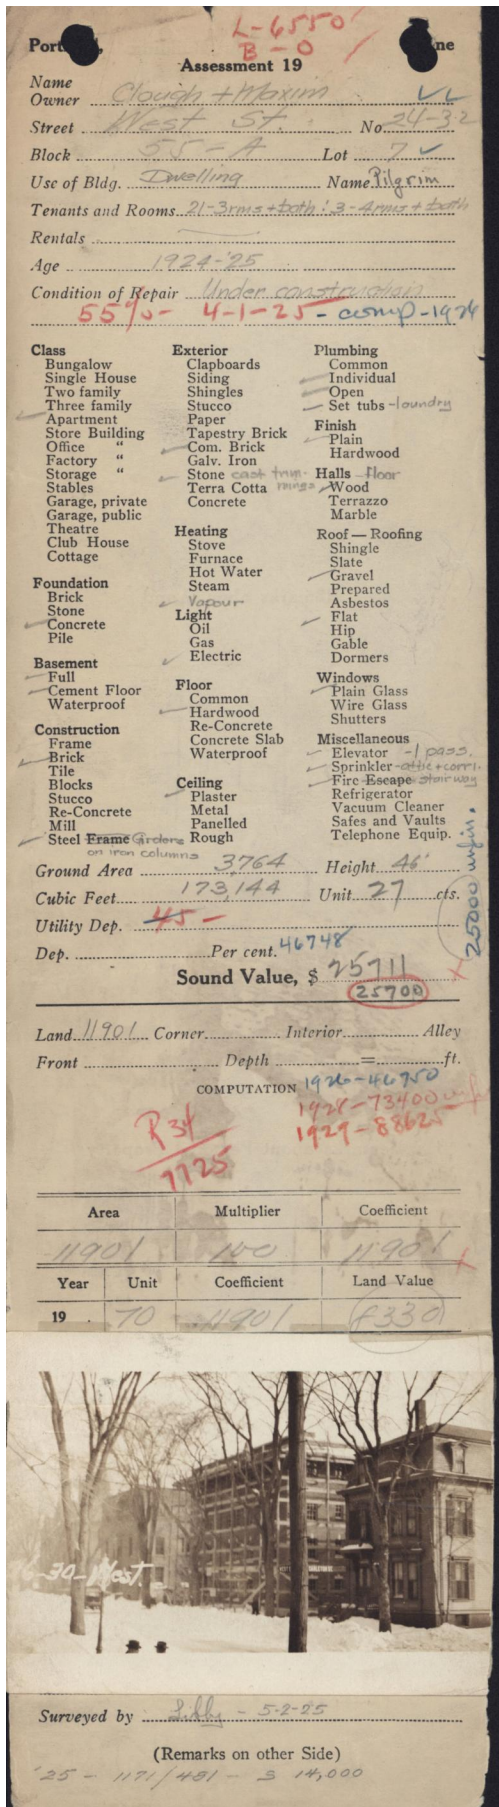 L-6550
B-0
Assessment 19
Name
Owner Clough + Maxim
Street West St. No. 24-32
Block 55-A Lot 7
Use of Bldg. Dwelling Name Pilgrim
Tenants and Rooms 21-3rms + bath : 3-4rms + bath
Rentals
Age 1924-'25
Condition of Repair Under construction
55% - 4-1-25 - comp - 1926
Class
Bungalow
Single House
Two family
Three family
Apartment
Store Building
Office "
Factory "
Storage "
Stables
Garage, private
Garage, public
Theatre
Club House
Cottage
Foundation
Brick
Stone
Concrete
Pile
Basement
Full
Cement Floor
Waterproof
Construction
Frame
Brick
Tile
Blocks
Stucco
Re-Concrete
Mill
Steel Frame Girders
on iron columns
Exterior
Clapboards
Siding
Shingles
Stucco
Paper
Tapestry Brick
Com. Brick
Galv. Iron
Stone cast trim-
Terra Cotta mings
Concrete
Heating
Stove
Furnace
Hot Water
Steam
Vapour
Light
Oil
Gas
Electric
Floor
Common
Hardwood
Re-Concrete
Concrete Slab
Waterproof
Ceiling
Plaster
Metal
Panelled
Rough
Plumbing
Common
Individual
Open
Set tubs - laundry
Finish
Plain
Hardwood
Halls - floor
Wood
Terrazzo
Marble
Roof — Roofing
Shingle
Slate
Gravel
Prepared
Asbestos
Flat
Hip
Gable
Dormers
Windows
Plain Glass
Wire Glass
Shutters
Miscellaneous
Elevator - 1 pass.
Sprinkler - attic + corri.
Fire Escape stairway
Refrigerator
Vacuum Cleaner
Safes and Vaults
Telephone Equip.
25000 unfin.
Ground Area 3764 Height 46'
Cubic Feet 173,144 Unit 27 cts.
Utility Dep. 45 -
Dep. Per cent. 46748
Sound Value, $ 25711
25700
Land 11901 Corner Interior Alley
Front Depth = ft.
COMPUTATION 1926-46750
1928-73400 unfin
1929-88625
R 34
7725
Area Multiplier Coefficient
11901 100 11901
Year Unit Coefficient Land Value
19 . 70 11901 8330
26-30-West
Surveyed by Libby - 5-2-25
(Remarks on other Side)
'25 - 1171/481 - $ 14,000